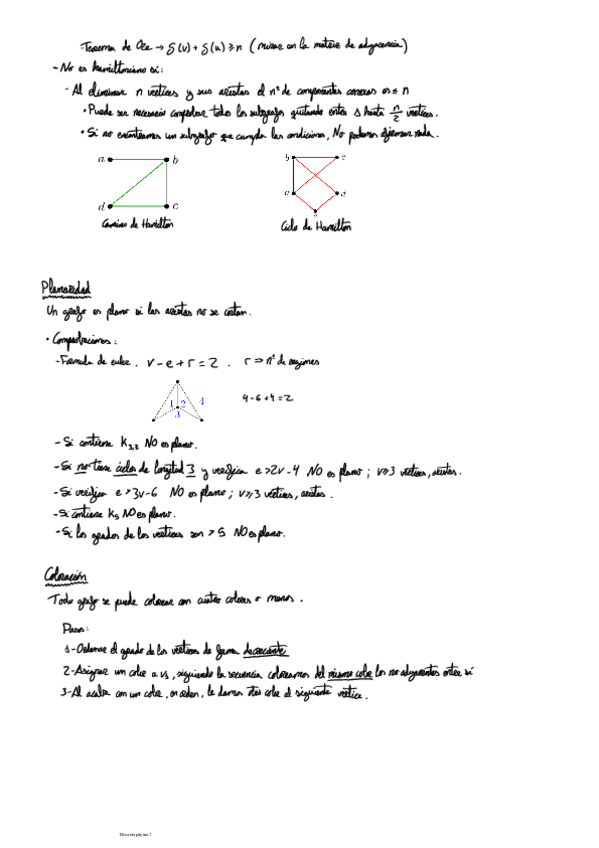 Teorema de Ore → δ(v) + δ(u) ≥ n (mirar en la matriz de adyacencia)
- No es hamiltoniano si:
- Al eliminar n vértices y sus aristas el nº de componentes conexas es ≤ n
• Puede ser necesario comprobar todos los subgrafos quitando entre 1 hasta n/2 vértices.
• Si no encontramos un subgrafo que cumpla las condiciones, No podemos afirmar nada.
a b
d c
Camino de Hamilton
b c
a d
e
Ciclo de Hamilton
Planaridad
Un grafo es plano si las aristas no se cortan.
• Comprobaciones:
- Fórmula de euler. v - e + r = 2 . r ⇒ nº de regiones
1 2 4
3
4 - 6 + 4 = 2
- Si contiene K3,3 NO es plano.
- Si no tiene ciclos de longitud 3 y verifica e > 2v - 4 NO es plano; v ≥ 3 vértices, aristas.
- Si verifica e > 3v - 6 NO es plano; v ≥ 3 vértices, aristas.
- Si contiene K5 NO es plano.
- Si los grados de los vértices son > 5 NO es plano.
Coloración
Todo grafo se puede colorear con cuatro colores o menos.
Pasos:
1- Ordenar el grado de los vértices de forma decreciente
2- Asignar un color a v1, siguiendo la secuencia coloreamos del mismo color los no adyacentes entre sí
3- Al acabar con un color, en orden, le damos otro color al siguiente vértice.
Discreta página 2